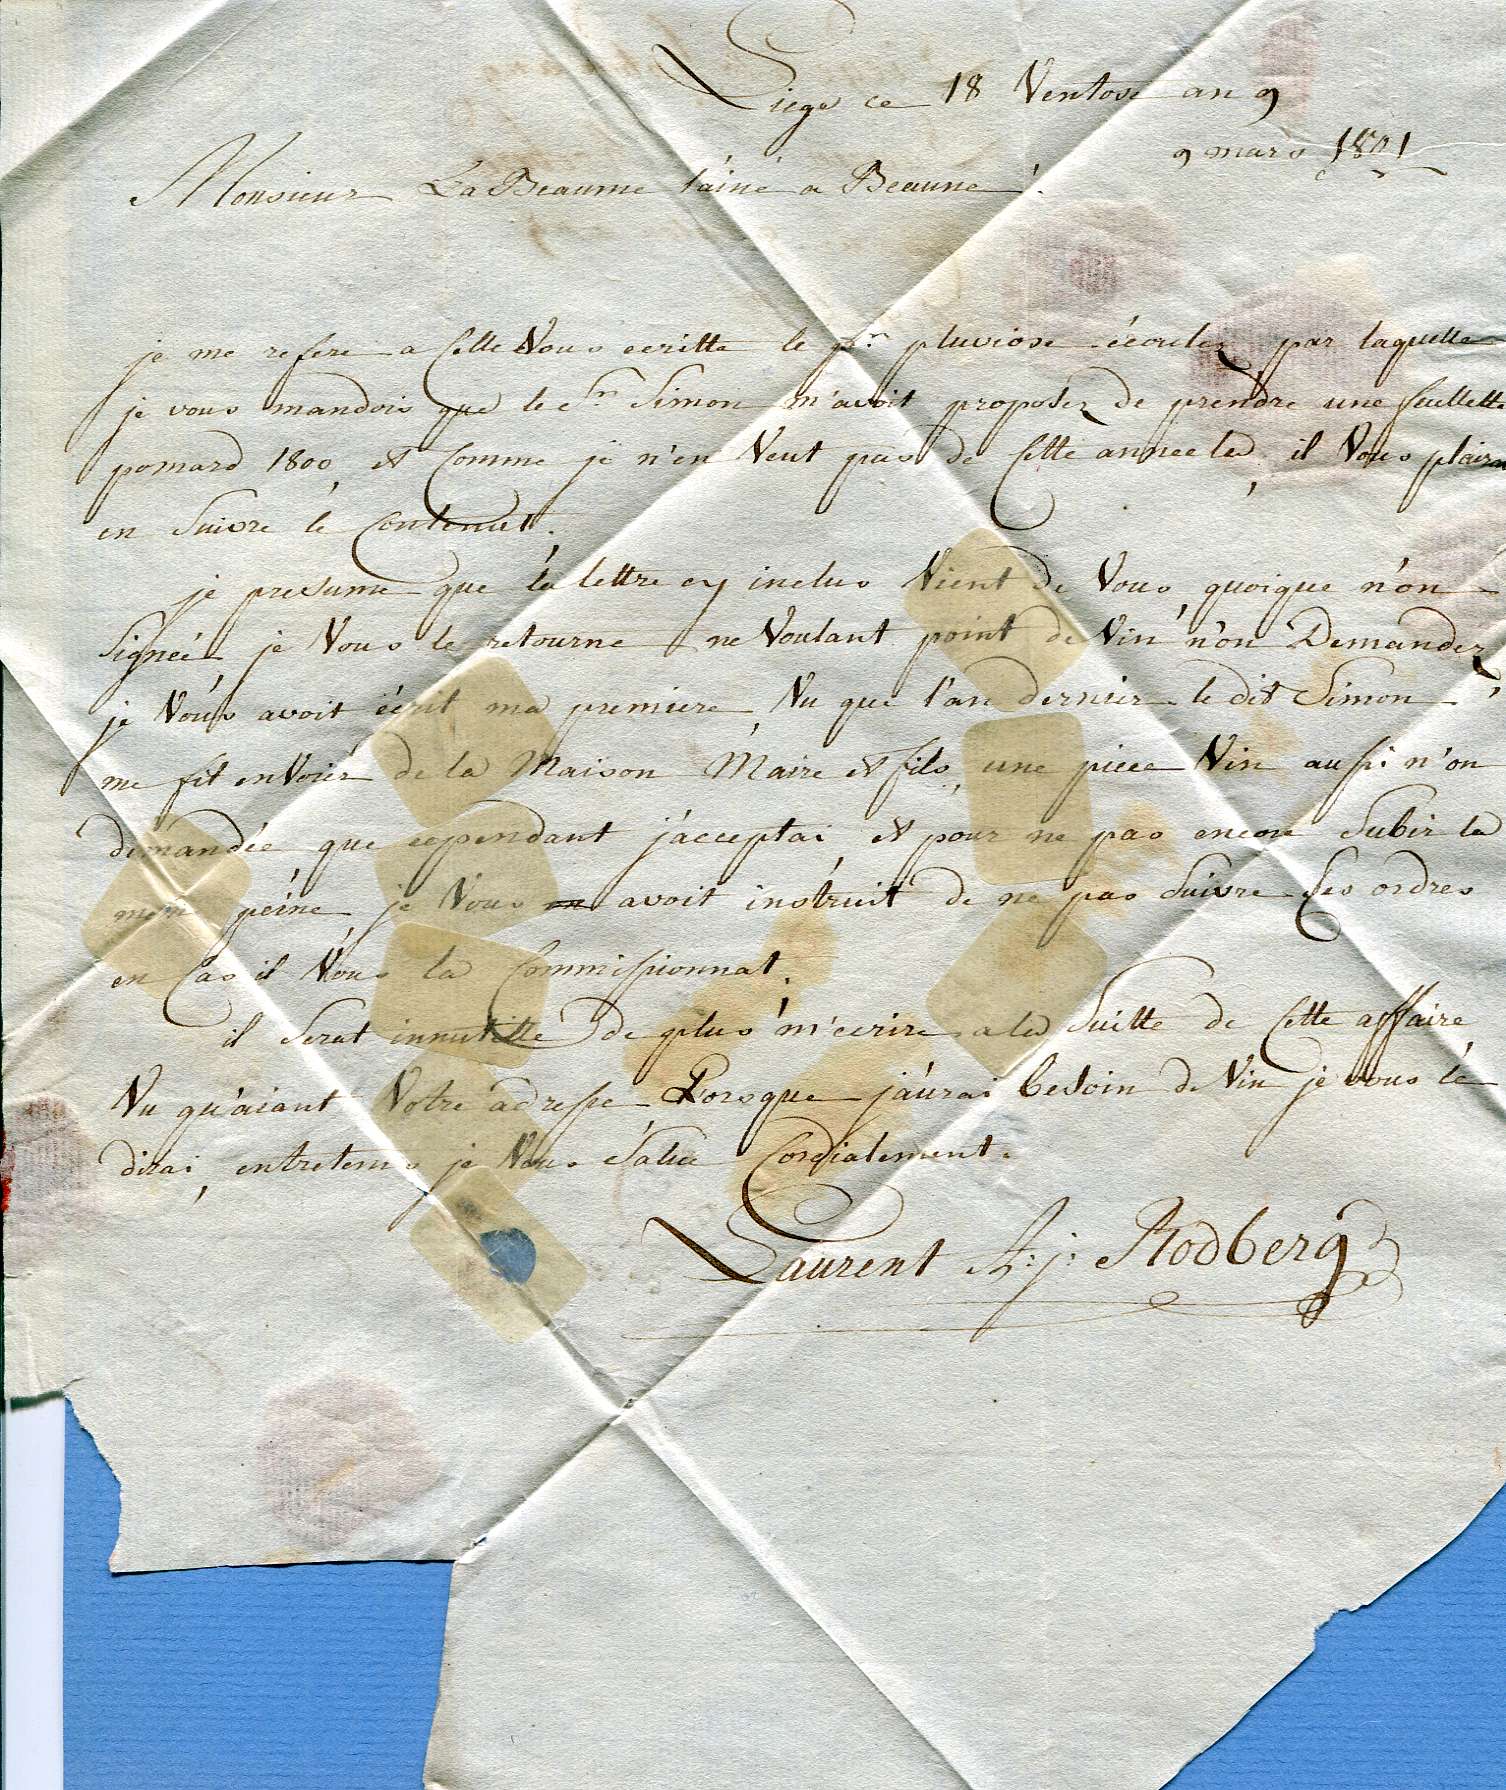 Liege ce 18 Ventose an 9
9 mars 1801
Monsieur La Beaume l'ainé a Beaune
je me refere a Celle Vous ecritte le pluviose écoulez par laquelle
je vous mandois que le Cn Simon m'avoit proposez de prendre une feullette
pomard 1800, et Comme je n'en Veut pas de Cette année la, il Vous plaira
en Suivre le Contenut.
je presume que la lettre cy inclus Vient de Vous quoique n'on
Signée je Vous le retourne ne Voulant point de Vin n'on Demandez,
je Vous avoit écrit ma premiere, Vu que l'an derneir le dit Simon
me fit enVoier de la Maison Maire et fils, une piece Vin aussi n'on
demandée que cependant j'acceptai, et pour ne pas encore Subir la
mem peine je Vous avoit instruit de ne pas Suivre Ses ordres
en Cas il Vous la Commissionnat.
il Serat innutille de plus m'ecrire a la Suitte de Cette affaire
Vu qu'aiant Votre adresse Lorsque j'aurai besoin de Vin je vous le
dirai, entretems je Vous Salue Cordialement.
Laurent A: j: Rodberg